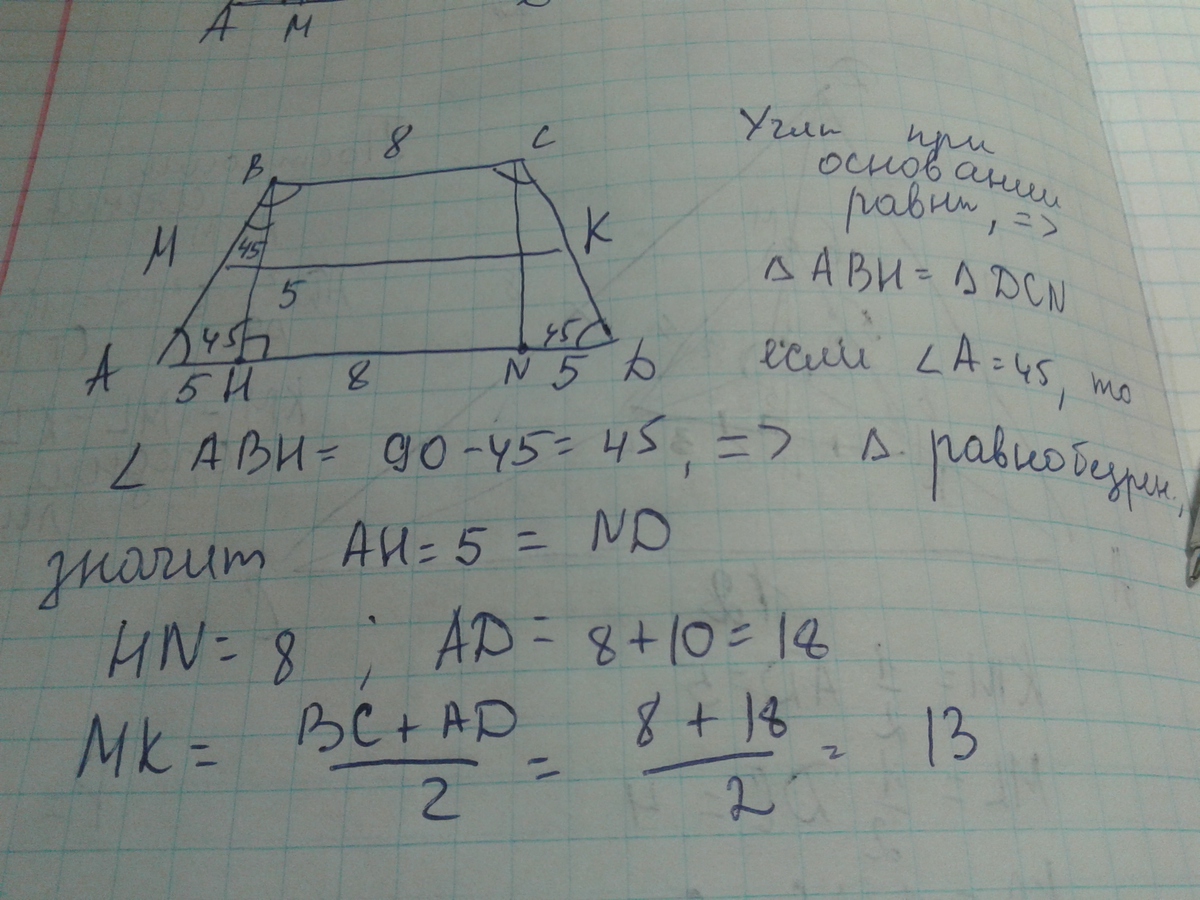 А М
B 8 C
M 45 K
5
A 45 45 D
5 H 8 N 5
Углы при
основании
равны, =>
Δ ABH = Δ DCN
если ∠A = 45, то
∠ ABH = 90 - 45 = 45, => Δ равнобедрен.,
значит AH = 5 = ND
HN = 8 ; AD = 8 + 10 = 18
MK = BC + AD / 2 = 8 + 18 / 2 = 13